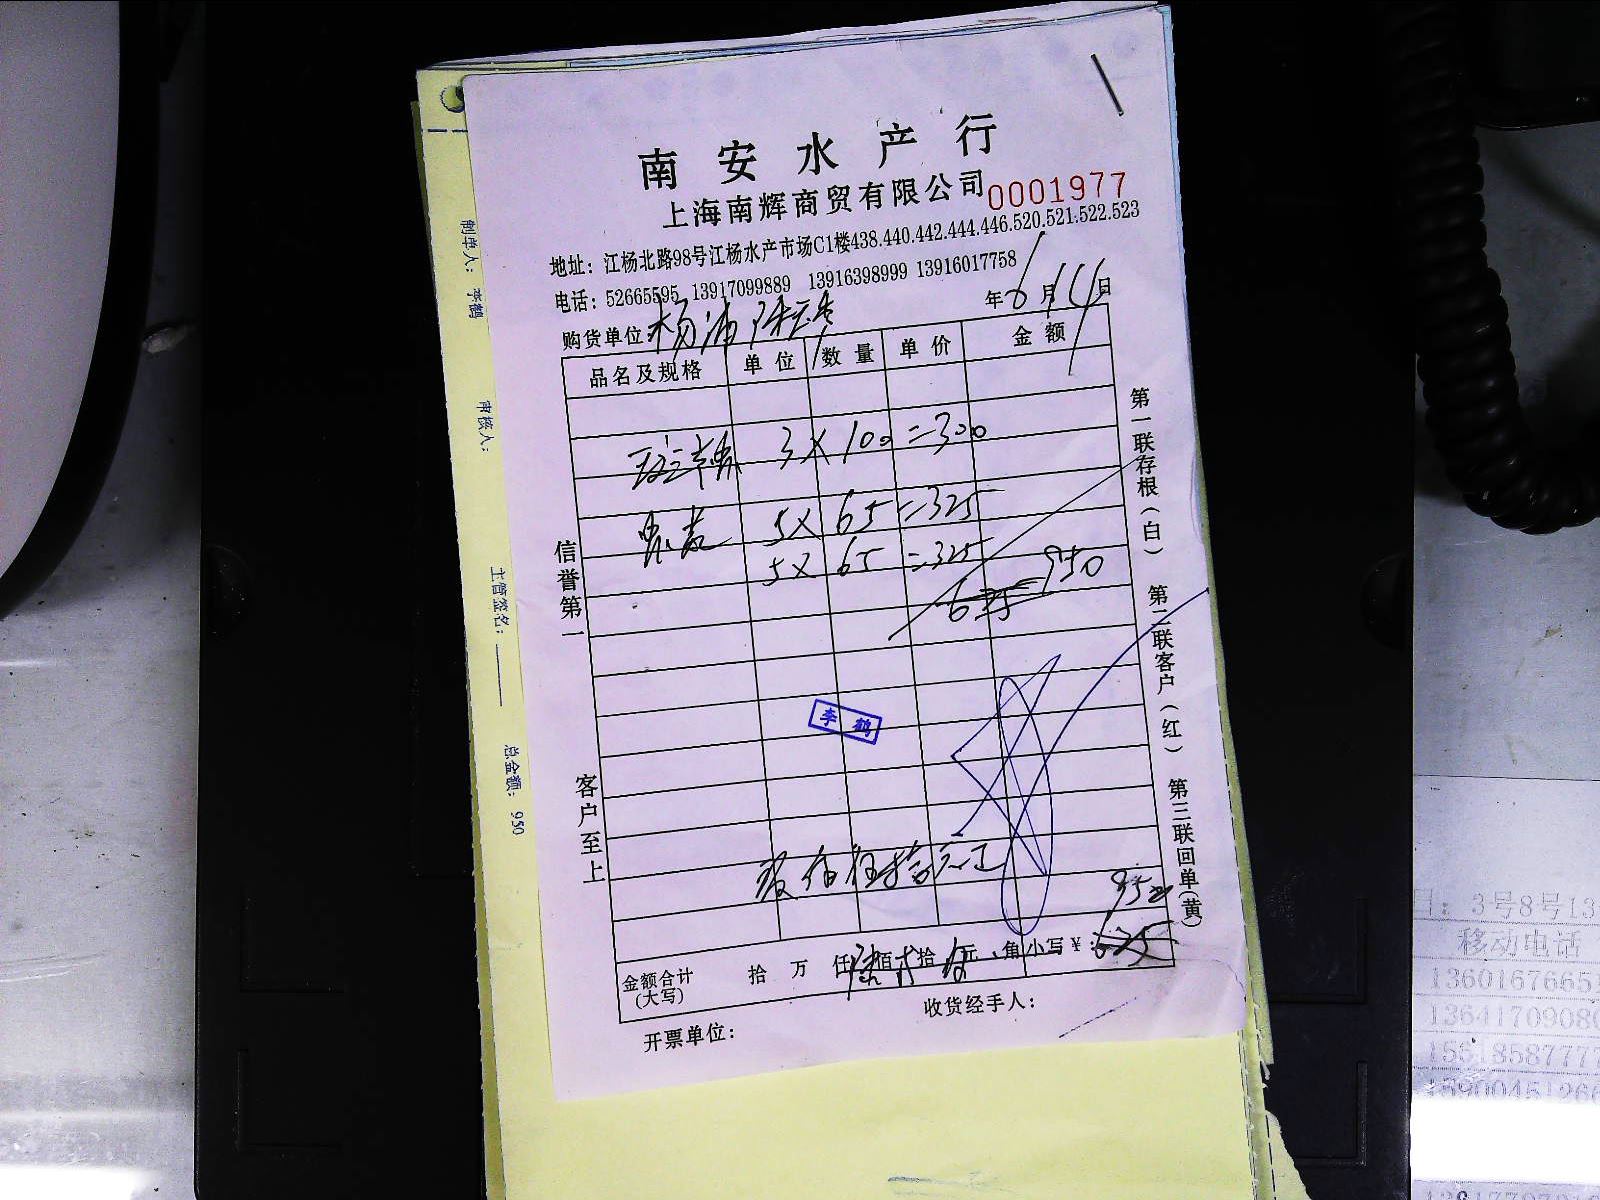 南安水产行
上海南辉商贸有限公司 0001977
地址：江杨北路98号江杨水产市场C1楼438.440.442.444.446.520.521.522.523
电话：52665595 13917099889 13916398999 13916017758
购货单位 杨浦 年6月14日
品名及规格 单位 数量 单价 金额
3×100=300
5×65=325
5×65=325
625 950
李鹤
玖佰伍拾元正
950
金额合计(大写) 拾 万 仟 陆佰 贰拾 伍元 角 小写￥：625
开票单位： 收货经手人：
信誉第一
客户至上
第一联存根(白)
第二联客户(红)
第三联回单(黄)
制单人：李鹤
审核人：
主管签名：
总金额：950
日：3号8号13
移动电话
1360167665
1364170908
1561858777